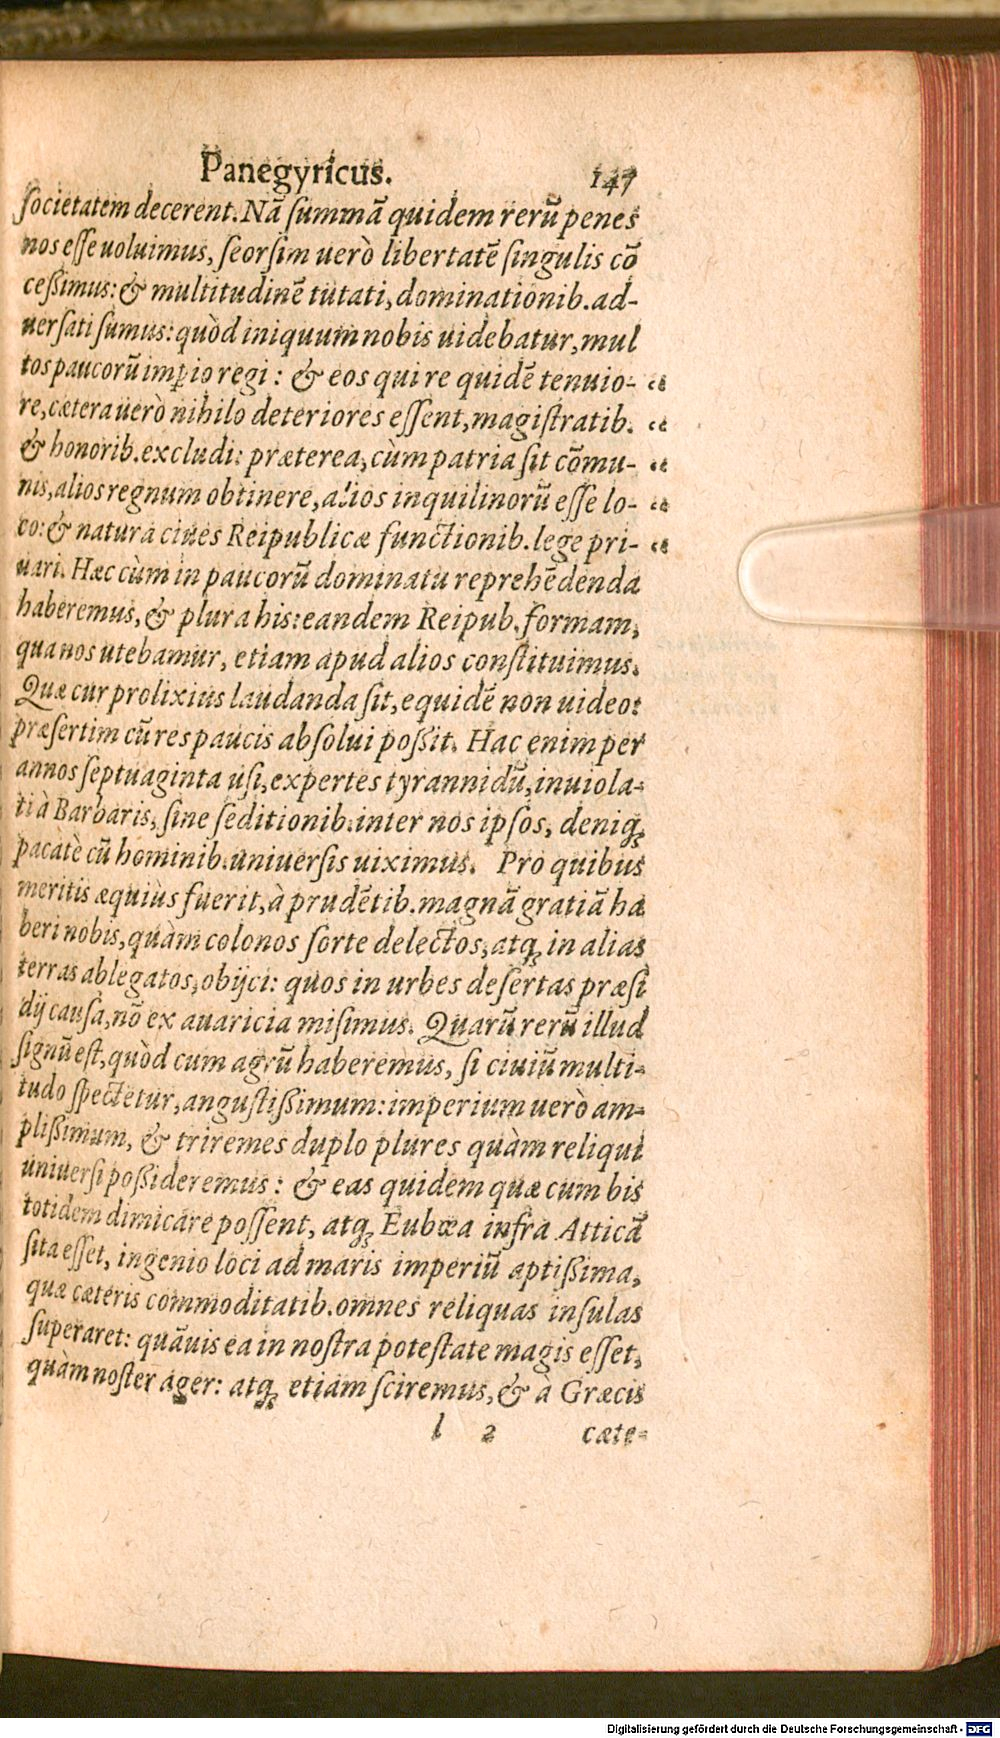 Panegyricus. 147
societatem decerent. Nā summā quidem rerū penes
nos esse uoluimus, seorsim uerò libertatē singulis cō
ceßimus: & multitudinē tutati, dominationib. ad-
uersati sumus: quòd iniquum nobis uidebatur, mul
tos paucorū imꝑio regi: & eos qui re quidē tenuio- “
re, cætera uerò nihilo deteriores essent, magistratib. “
& honorib. excludi: præterea, cùm patria sit cōmu- “
nis, alios regnum obtinere, alios inquilinorū esse lo- “
co: & natura ciues Reipublicæ functionib. lege pri- “
uari. Hæc cùm in paucorū dominatu reprehēdenda
haberemus, & plura his: eandem Reipub. formam,
qua nos utebamur, etiam apud alios constituimus.
Quæ cur prolixius laudanda sit, equidē non uideo:
præsertim cū res paucis absolui poßit. Hac enim per
annos septuaginta usi, expertes tyrannidū, inuiola-
ti à Barbaris, sine seditionib. inter nos ipsos, deniq;
pacatè cū hominib. uniuersis uiximus. Pro quibus
meritis æquiùs fuerit, à prudētib. magnā gratiā ha
beri nobis, quàm colonos sorte delectos, atq; in alias
terras ablegatos, obijci: quos in urbes desertas præsi
dij causa, nō ex auaricia misimus. Quarū rerū illud
signū est, quòd cum agrū haberemus, si ciuiū multi-
tudo spectetur, angustißimum: imperium uerò am-
plißimum, & triremes duplo plures quàm reliqui
uniuersi poßideremus: & eas quidem quæ cum bis
totidem dimicare possent, atq; Eubœa infra Atticā
sita esset, ingenio loci ad maris imperiū aptißima,
quæ cæteris commoditatib. omnes reliquas insulas
superaret: quāuis ea in nostra potestate magis esset,
quàm noster ager: atq; etiam sciremus, & à Græcis
l 2 cæte-
Digitalisierung gefördert durch die Deutsche Forschungsgemeinschaft - DFG